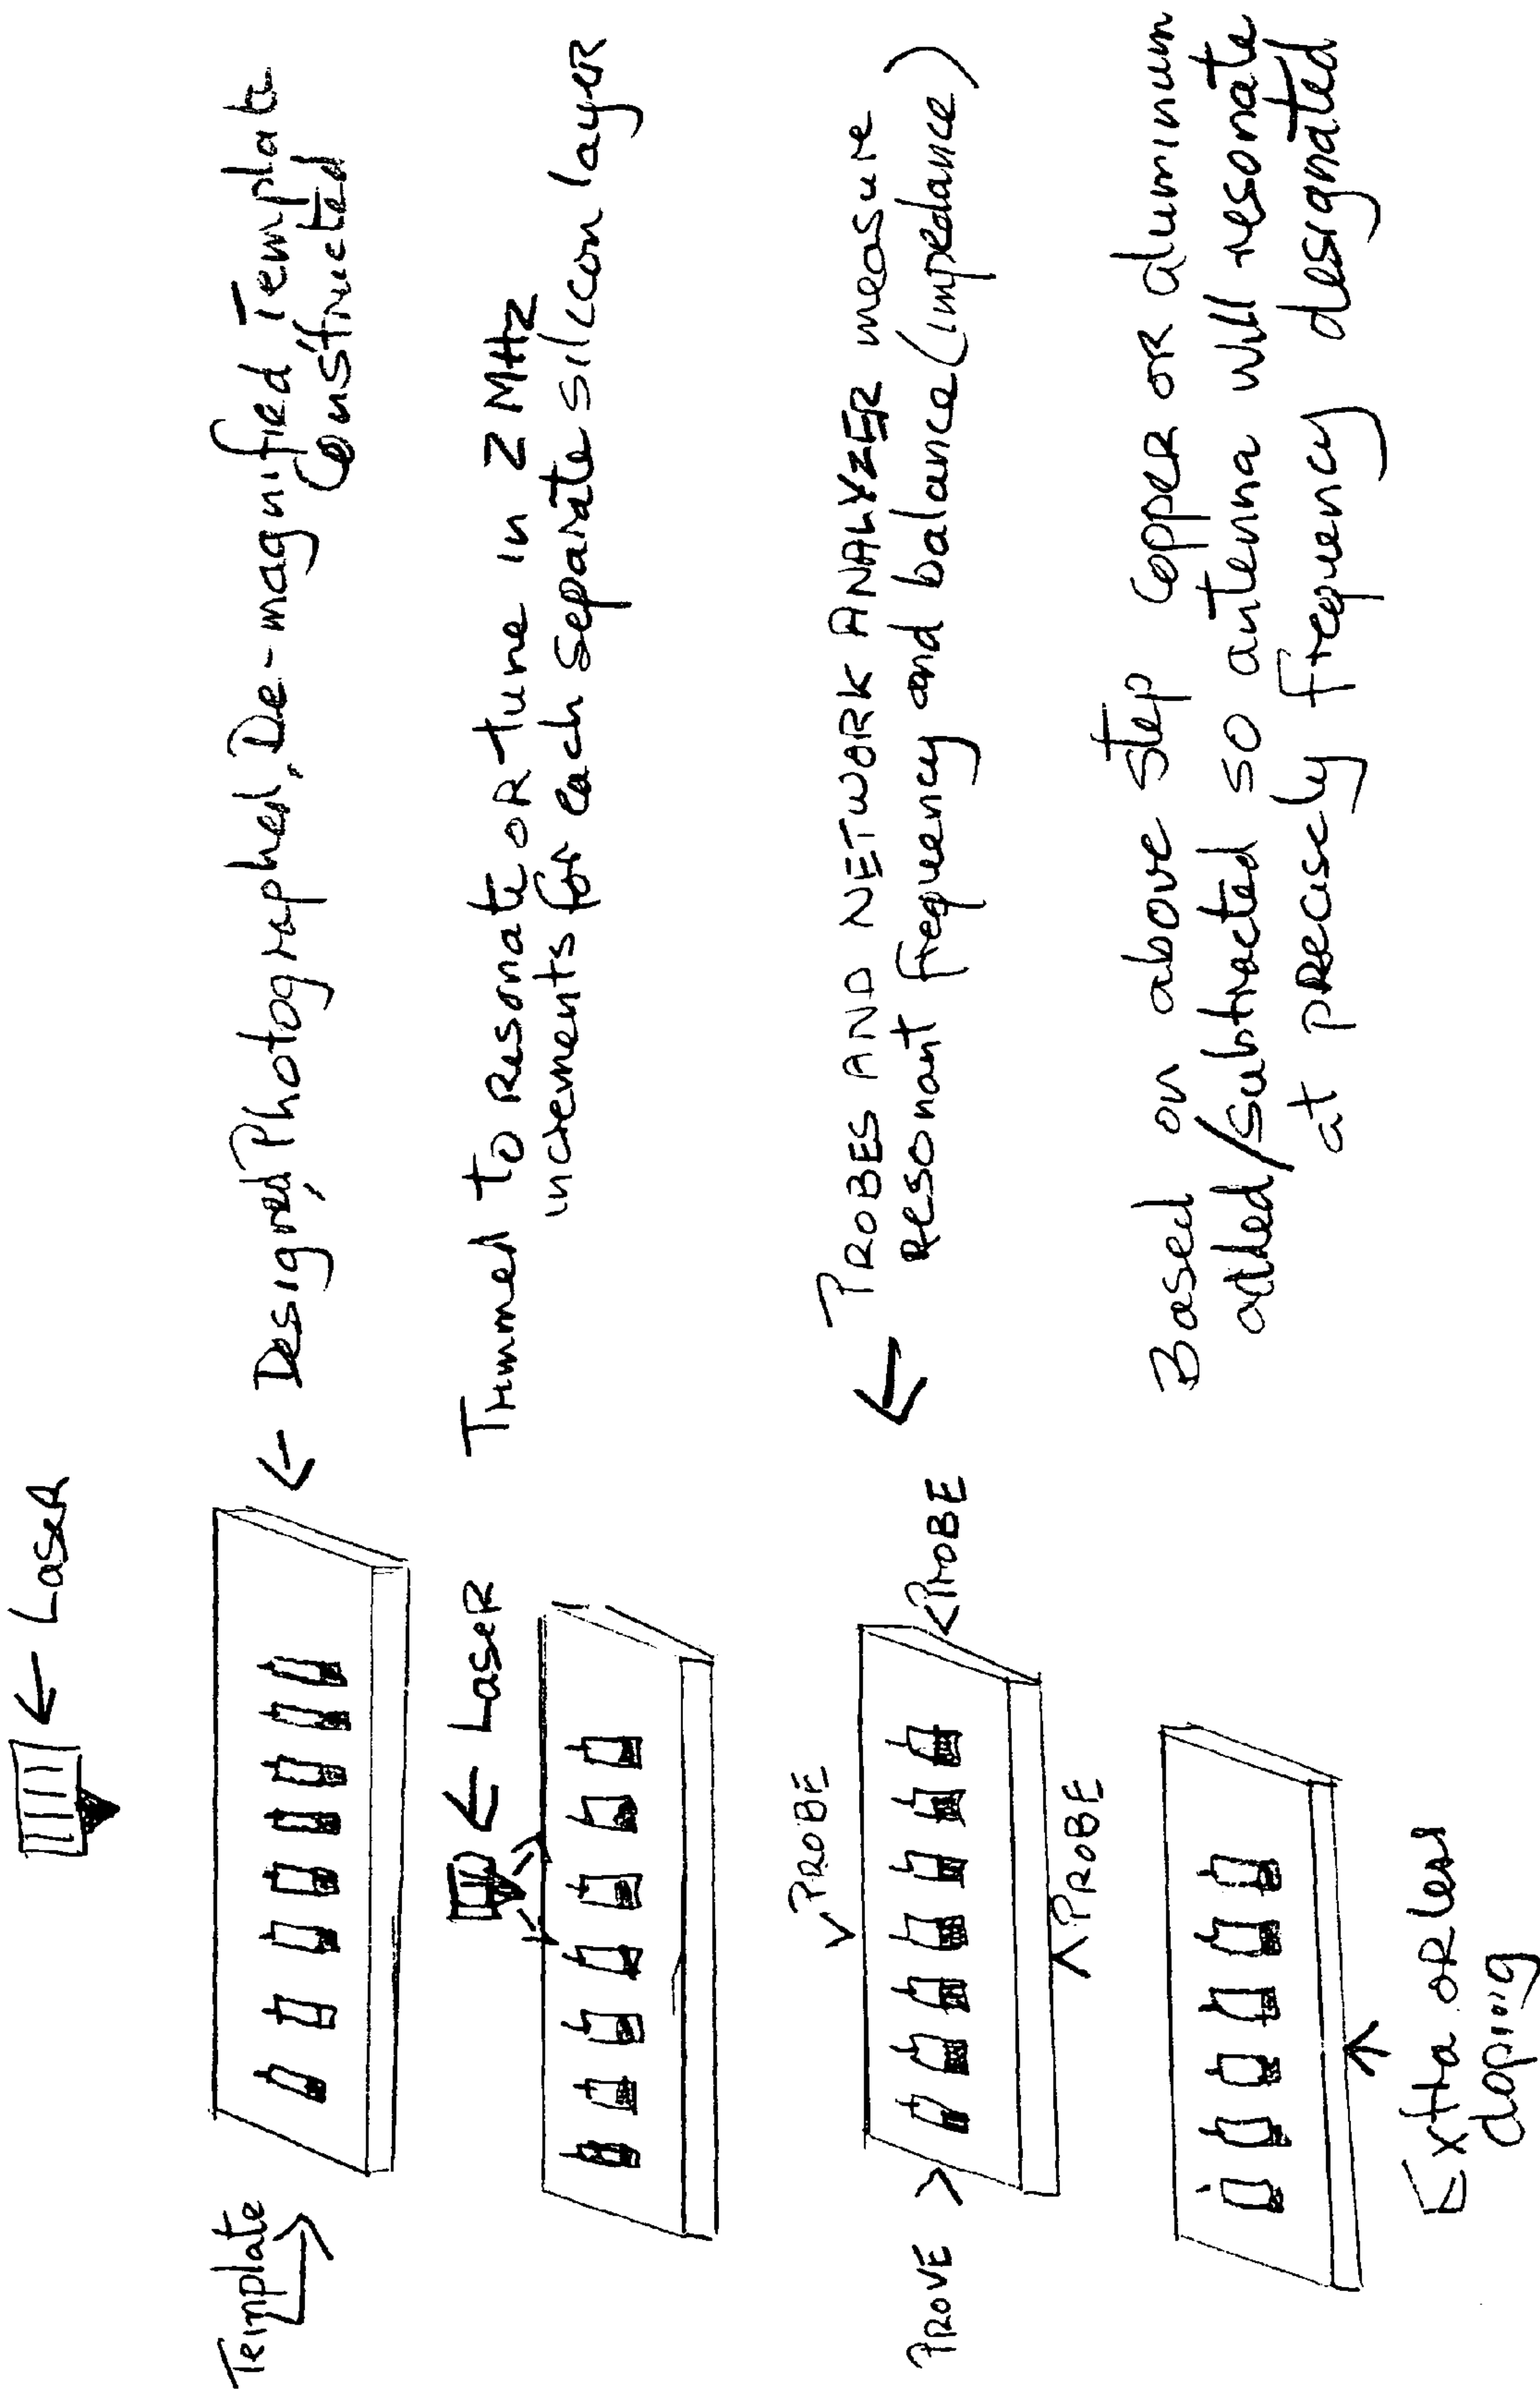 ← Laser
Template
← Designed, Photographed, De-magnified Template
Constructed
← Laser
Trimmed to Resonate or tune in 2 MHz
increments for each separate silicon layer
PROBE
PROVE >
< PROBE
PROBE
← PROBES AND NETWORK ANALYZER measure
resonant frequency and balance (impedance)
Based on above step copper or aluminum
added/subtracted so antenna will resonate
at precisely frequency designated
Extra or less
doping